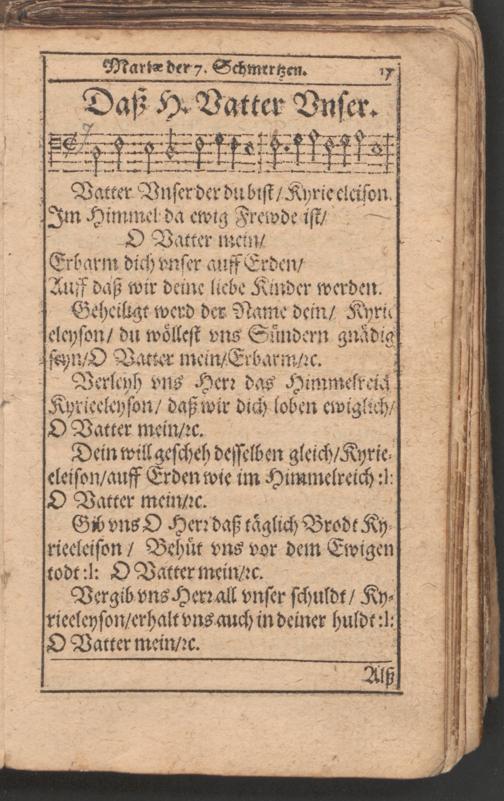 Mariæ der 7. Schmertzen. 17
Daß H. Vatter Vnser.
Vatter Vnser der du bist / Kyrie eleison.
Im Himmel da ewig Frewde ist /
O Vatter mein /
Erbarm dich vnser auff Erden /
Auff daß wir deine liebe Kinder werden.
Geheiligt werd der Name dein / Kyrie
eleyson / du wöllest vns Sündern gnädig
seyn / O Vatter mein / Erbarm / ꝛc.
Verleyh vns Herr das Himmelreich
Kyrieeleyson / daß wir dich loben ewiglich /
O Vatter mein / ꝛc.
Dein will gescheh desselben gleich / Kyrie-
eleison / auff Erden wie im Himmelreich :l:
O Vatter mein / ꝛc.
Gib vns O Herr daß täglich Brodt Ky-
rieeleison / Behüt vns vor dem Ewigen
todt :l: O Vatter mein / ꝛc.
Vergib vns Herr all vnser schuldt / Ky-
rieeleyson / erhalt vns auch in deiner huldt :l:
O Vatter mein / ꝛc.
Alß